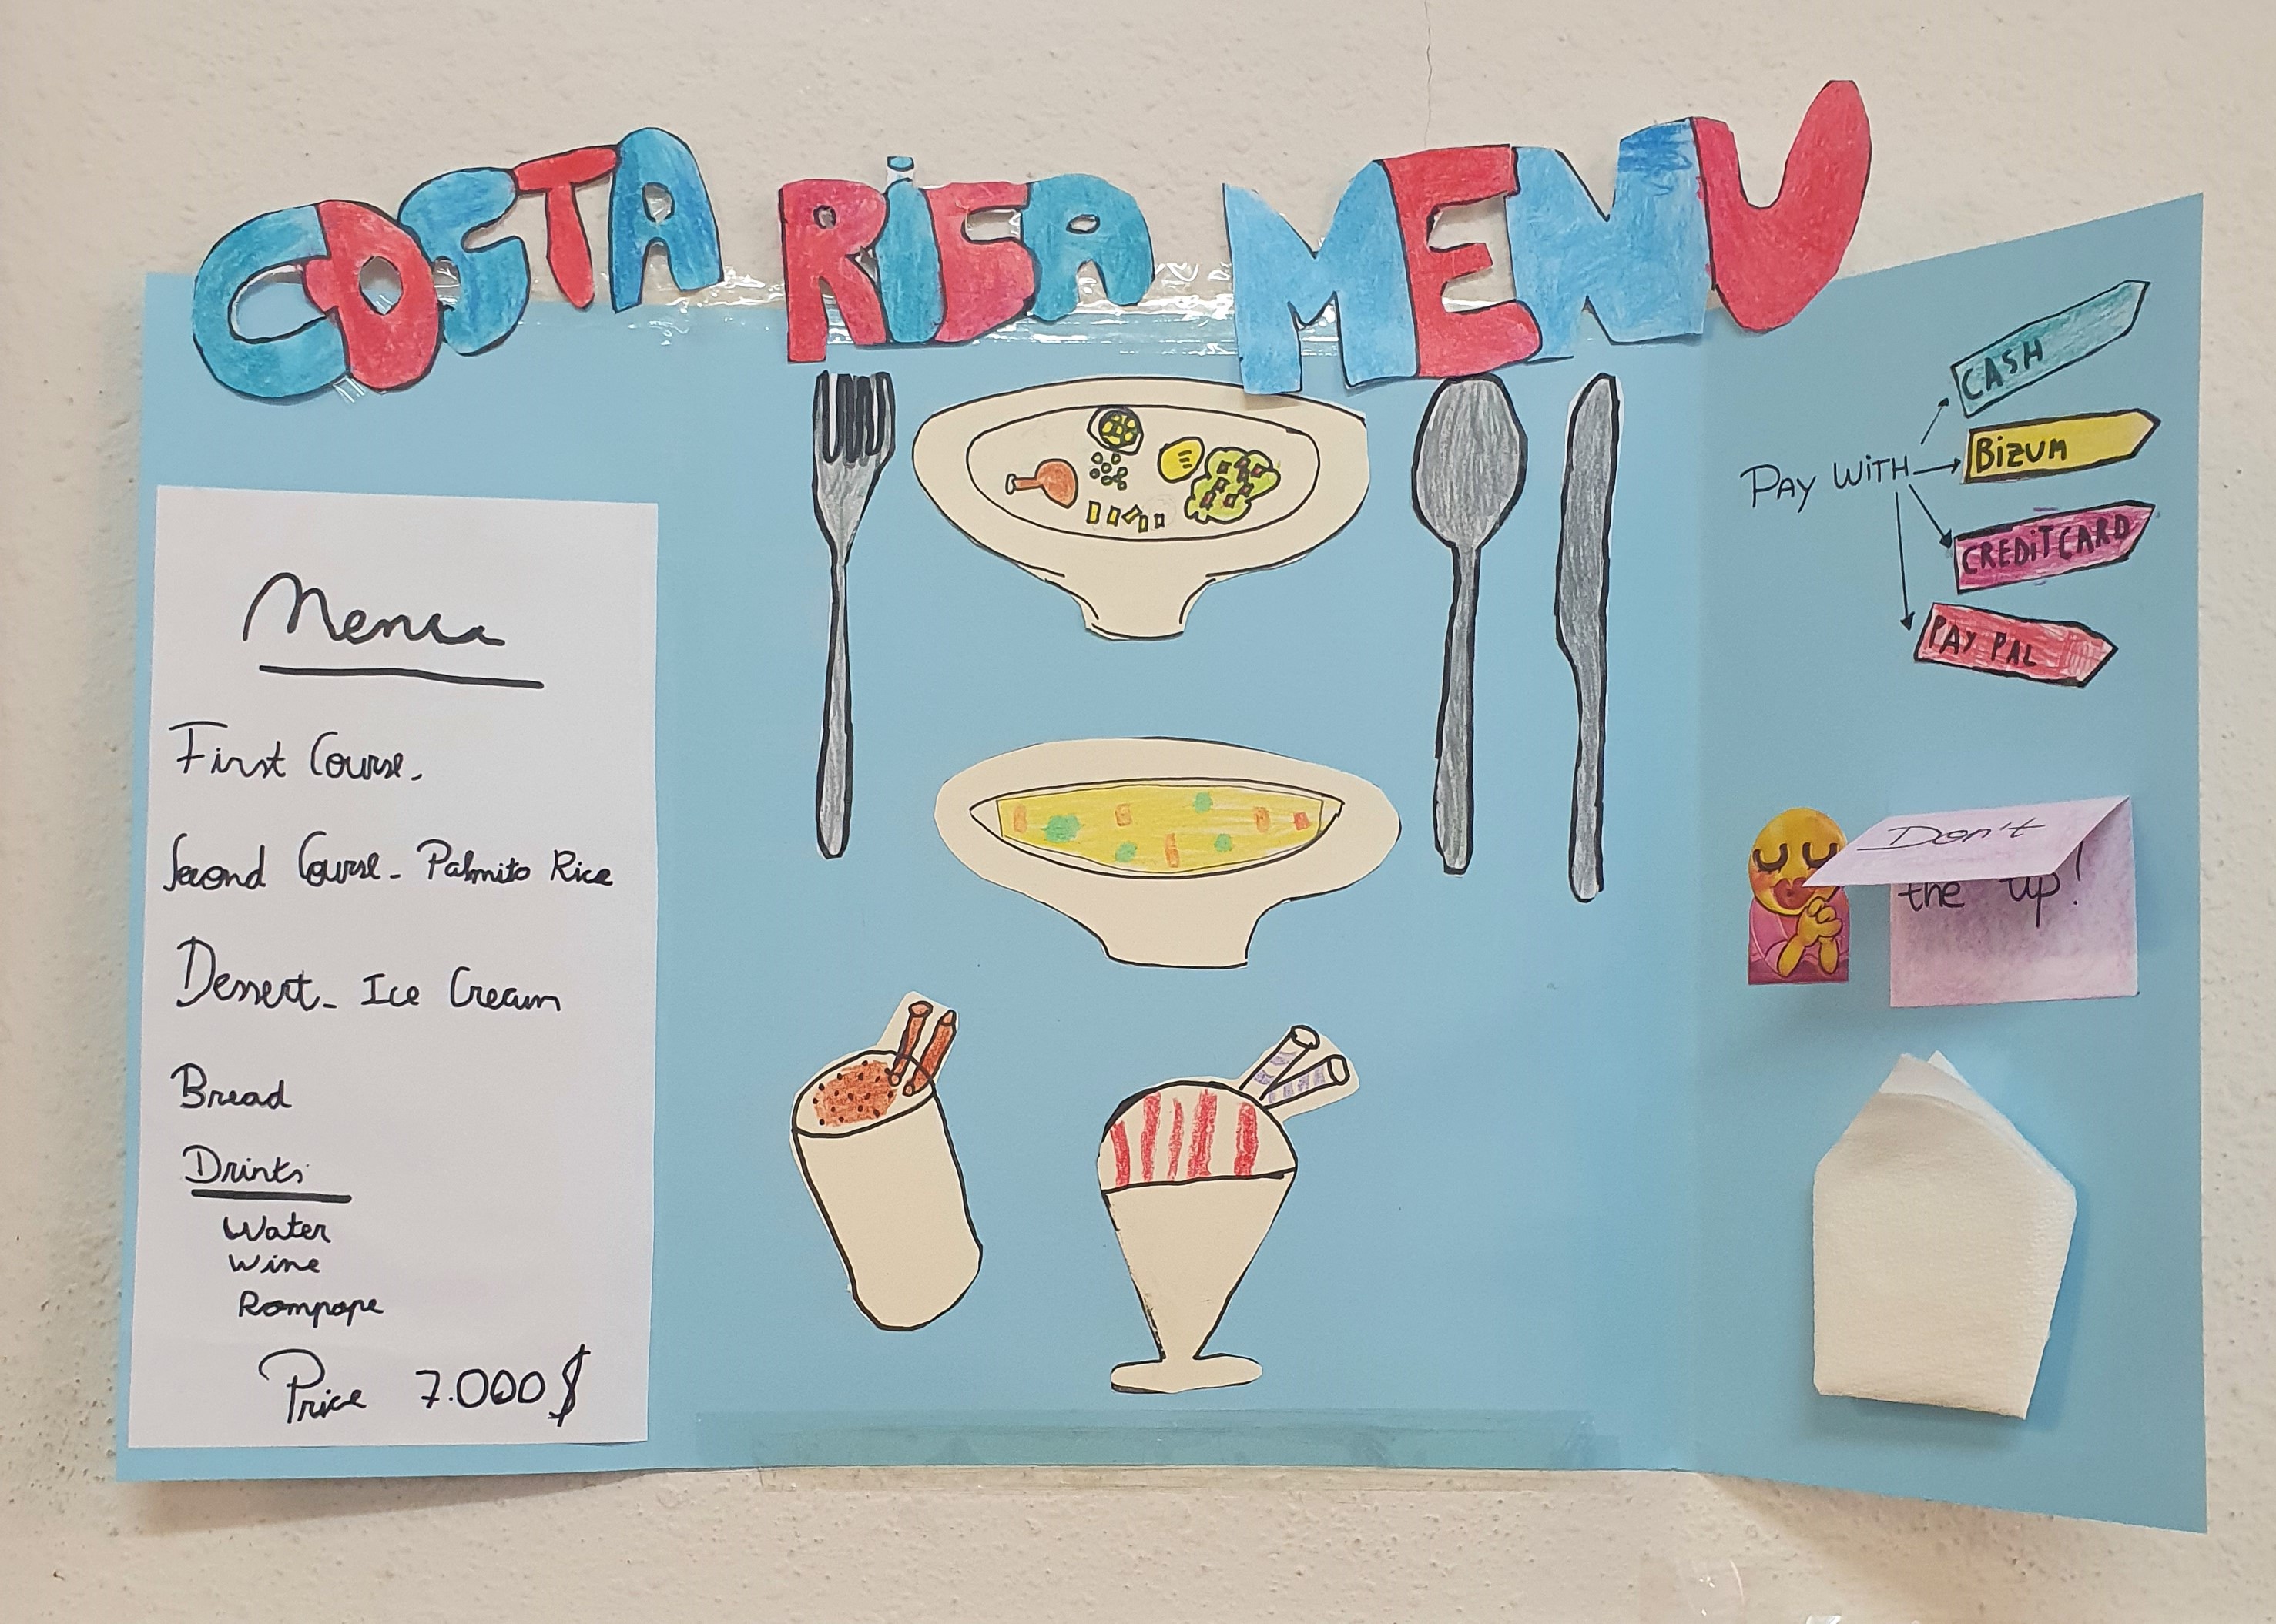 COSTA RICA MENU
Menu
First Course.
Second Course - Palmito Rice
Dessert - Ice Cream
Bread
Drinks
Water
Wine
Rompope
Price 7.000$
PAY WITH
CASH
BIZUM
CREDIT CARD
PAY PAL
Don't
the tip!